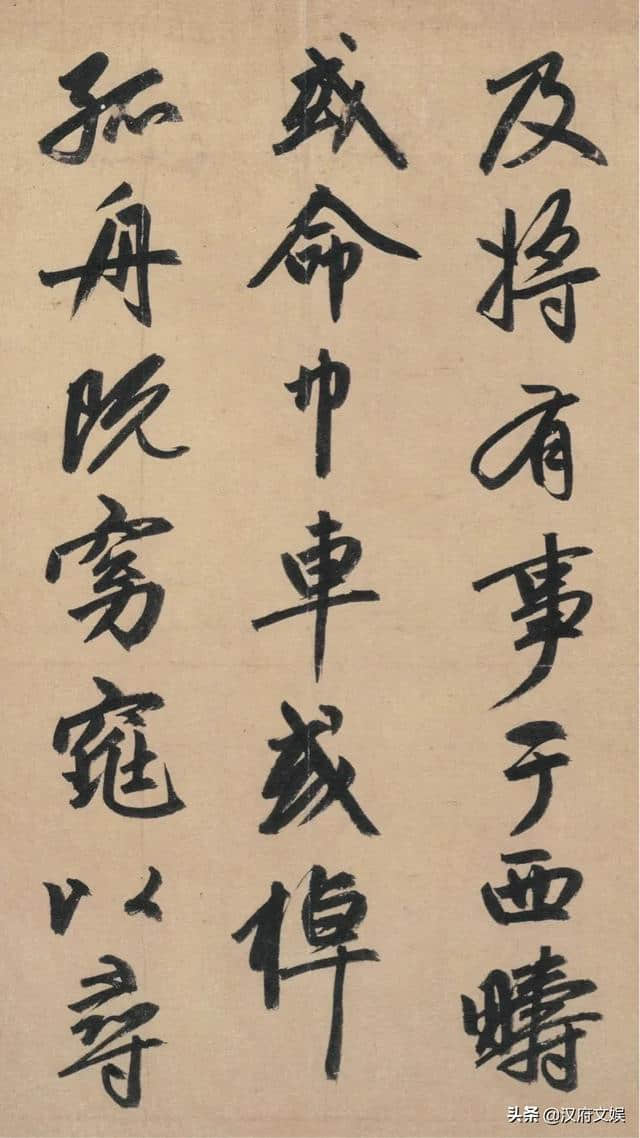 及将有事于西疇
或命巾車或棹
孤舟既窈窕以尋
头条 @汉府文娱